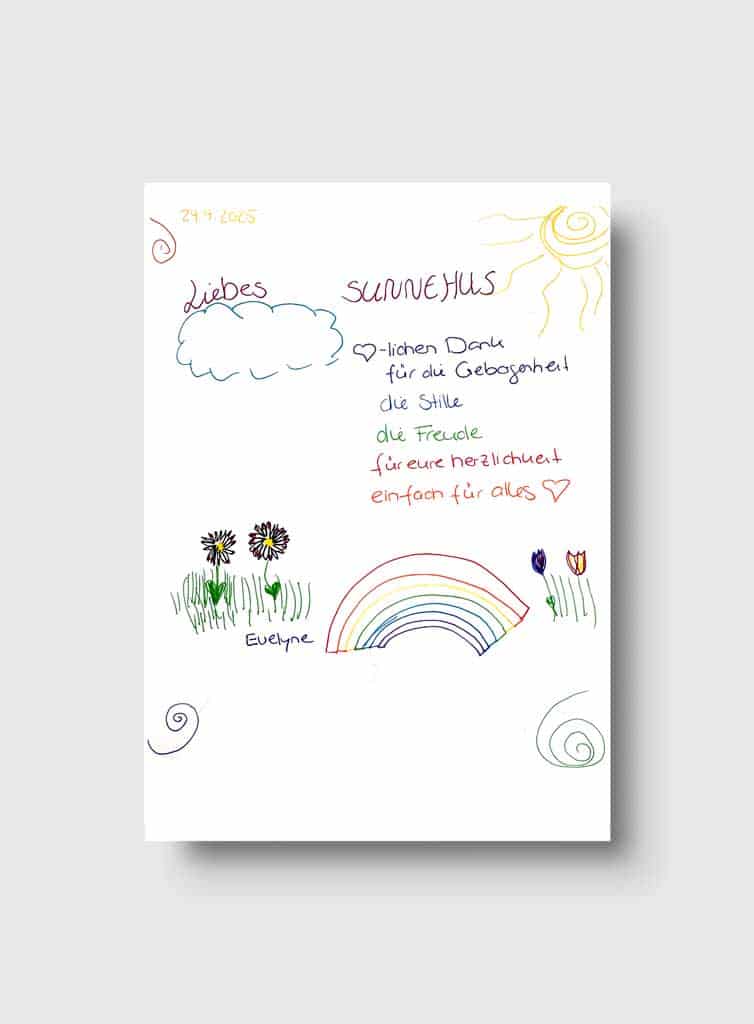 24.9.2025
Liebes SUNNEHUS
♡-lichen Dank
für die Gebogenheit
die Stille
die Freude
für eure herzlichkeit
einfach für alles ♡
Evelyne